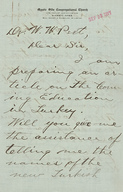 Mystic Side Congregational Church
Dr. W. W. Peet,
Dear Sir,
I am
preparing an ar-
ticle on the Com-
ing Education
in Turkey.
Will you give me
the assistance of
telling me the
names of the
new Turkish